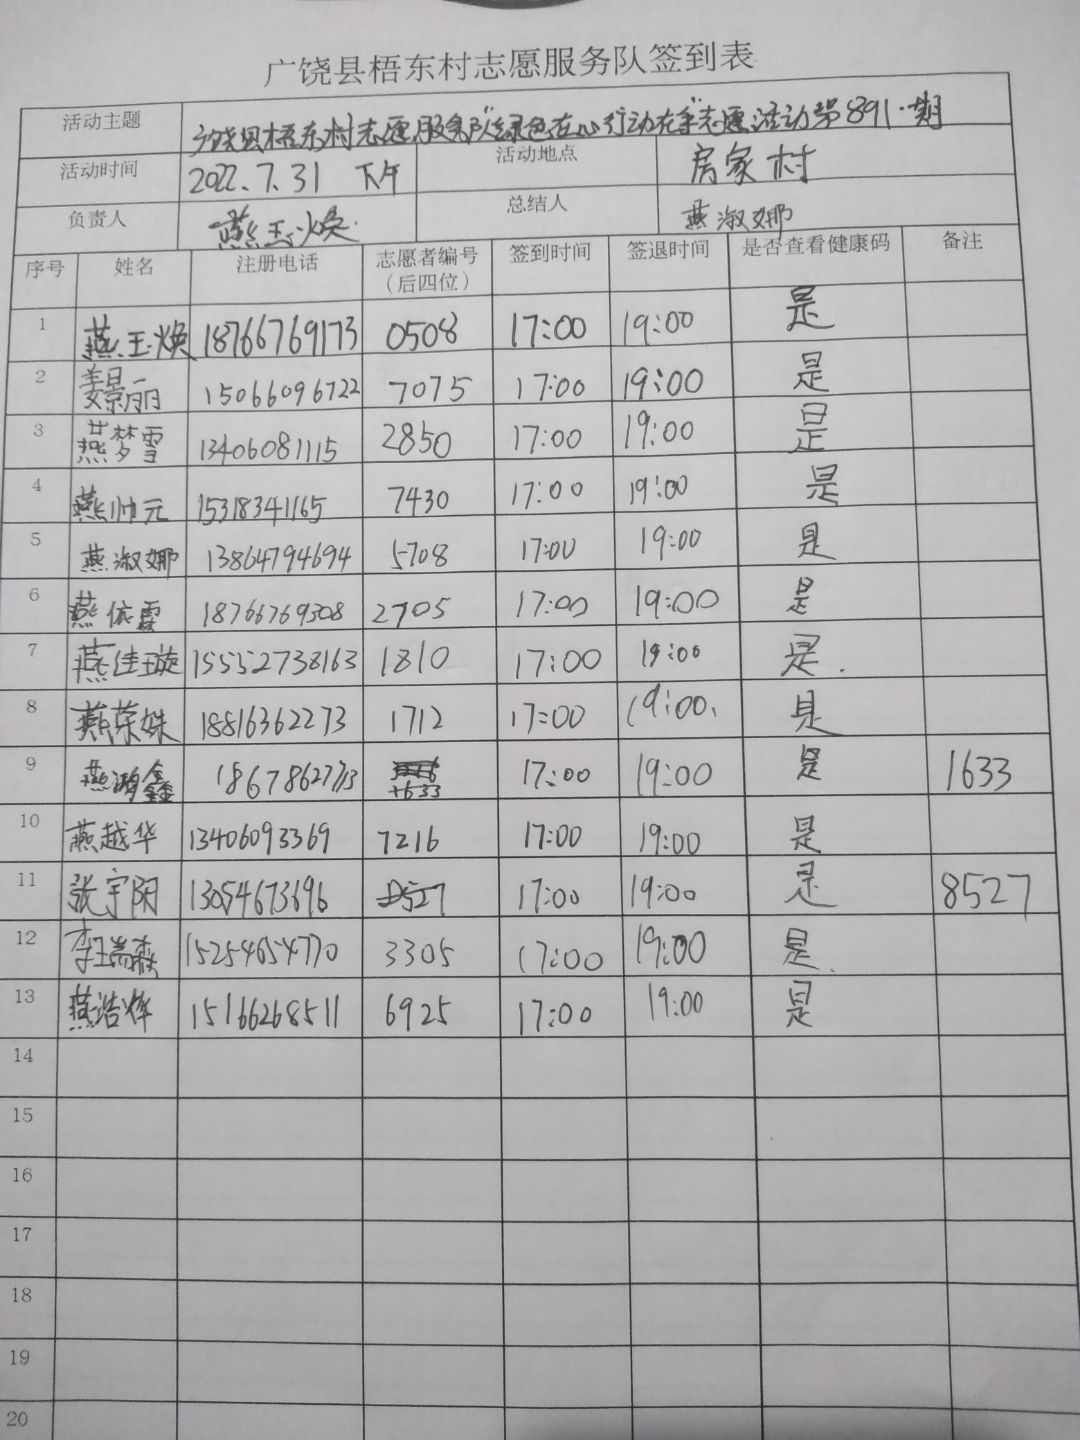 广饶县梧东村志愿服务队签到表
活动主题 广饶县梧东村志愿服务队"绿色在心行动在手"志愿活动第891期
活动时间 2022.7.31 下午 活动地点 房家村
负责人 燕玉焕 总结人 燕淑娜
序号 姓名 注册电话 志愿者编号（后四位） 签到时间 签退时间 是否查看健康码 备注
1 燕玉焕 18766769173 0508 17:00 19:00 是
2 姜景丽 15066096722 7075 17:00 19:00 是
3 燕梦雪 13406081115 2850 17:00 19:00 是
4 燕帅元 15318341165 7430 17:00 19:00 是
5 燕淑娜 13864794694 5708 17:00 19:00 是
6 燕依霖 18766769308 2705 17:00 19:00 是
7 燕佳璇 15552738163 1810 17:00 19:00 是.
8 燕荣姝 18816362273 1712 17:00 19:00. 是
9 燕鸿鑫 18678627713 17:00 19:00 是 1633
10 燕越华 13406093369 7216 17:00 19:00 是
11 张宇阳 13054673696 17:00 19:00 是 8527
12 李瑞森 15254654770 3305 17:00 19:00 是.
13 燕浩烽 15166268511 6925 17:00 19:00 是
14
15
16
17
18
19
20